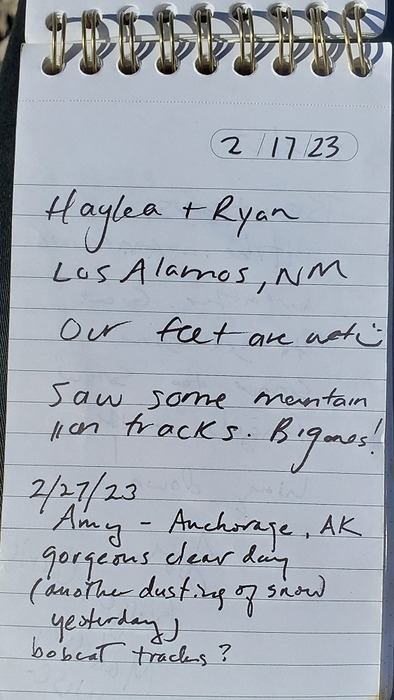 2/17/23
Haylea + Ryan
Los Alamos, NM
Our feet are wet :)
Saw some mountain
lion tracks. Big ones!
2/27/23
Amy - Anchorage, AK
gorgeous clear day
(another dusting of snow
yesterday)
bobcat tracks?